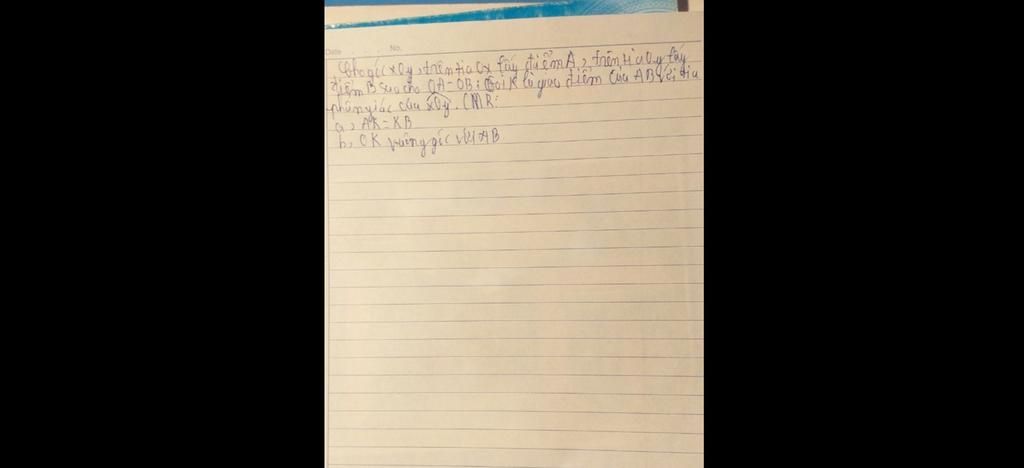 Date No.
Cho góc xOy, trên tia Ox lấy điểm A, trên tia Oy lấy
điểm B sao cho OA = OB. Gọi K là giao điểm của AB với tia
phân giác của xOy. CMR:
a, AK = KB
b, OK vuông góc với AB